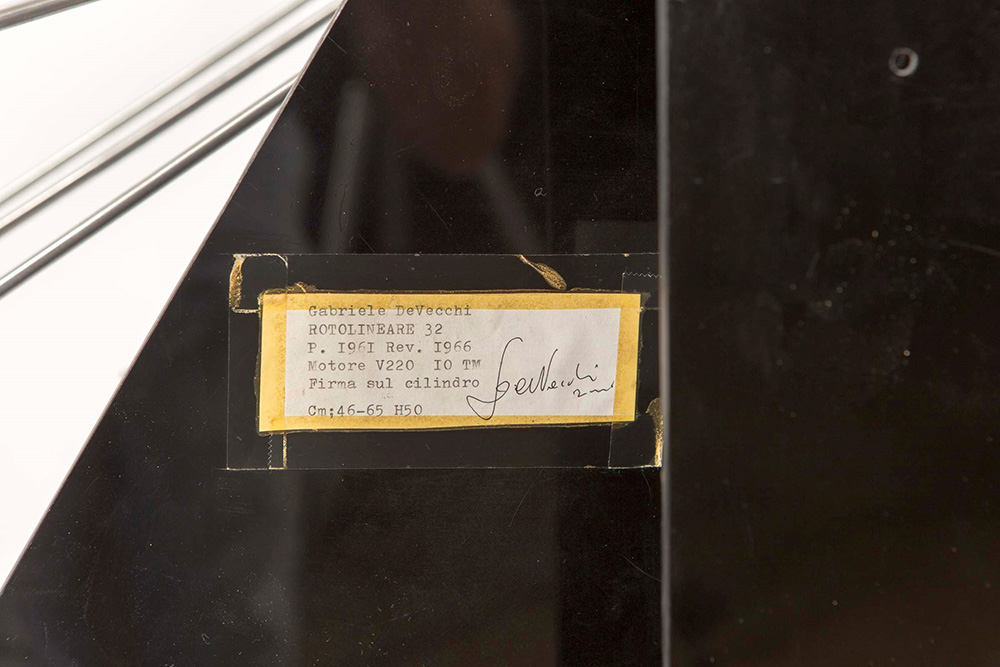 Gabriele DeVecchi
ROTOLINEARE 32
P. I96I Rev. I966
Motore V220 IO TM
Firma sul cilindro
Cm;46-65 H50
DeVecchi